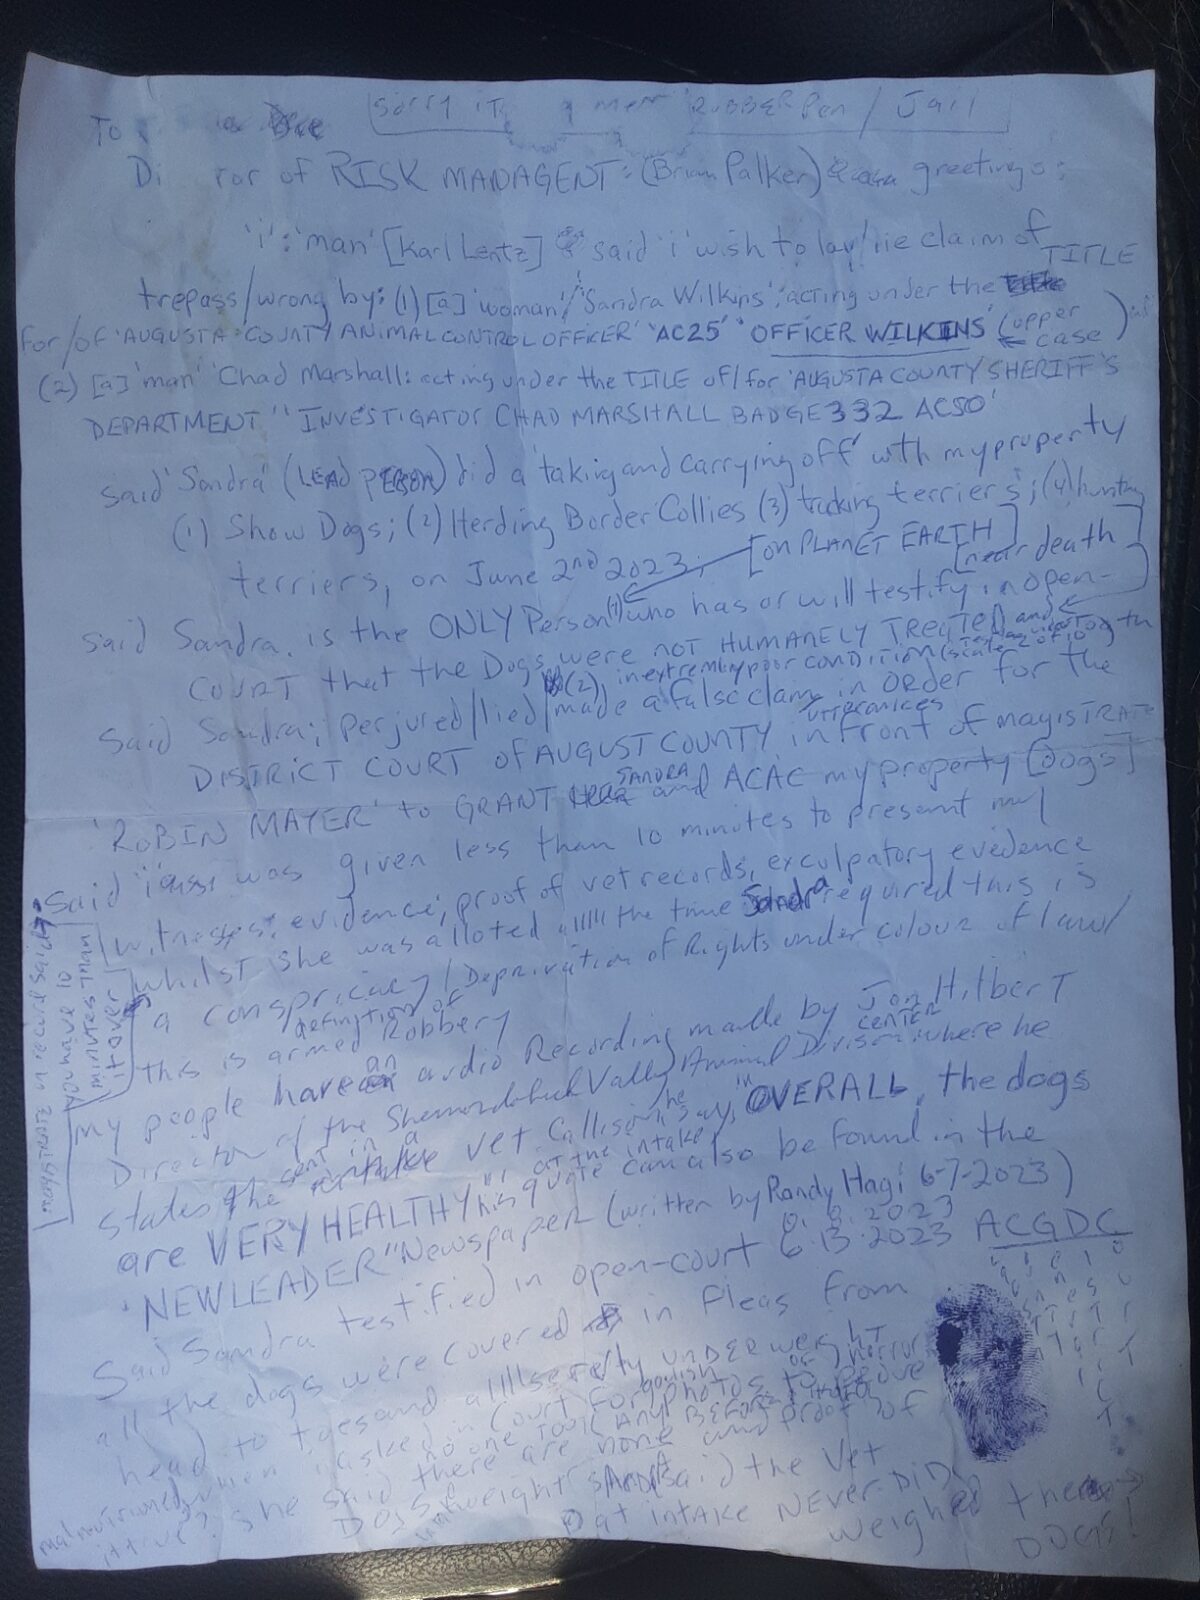 To
Sorry it RUBBER Pen / Jail
Di ror of RISK MANAGENT: (Brian Palker) greetings:
'i': 'man' [Karl Lentz] said 'i' wish to lay claim of
trepass/wrong by: (1) [a] 'woman'/ 'Sandra Wilkins': acting under the TITLE
for/of 'AUGUSTA COUNTY ANIMAL CONTROL OFFICER' 'AC25' 'OFFICER WILKINS' (upper case)
(2) [a] 'man' 'Chad Marshall: acting under the TITLE of/for 'AUGUSTA COUNTY SHERIFF'S
DEPARTMENT" "INVESTIGATOR CHAD MARSHALL BADGE 332 ACSO'
said 'Sandra' (LEAD PERSON) did a 'taking and carrying off' with my property
(1) Show Dogs; (2) Herding Border Collies (3) tracking terriers; (4) hunting
terriers, on June 2nd 2023;
[on PLANET EARTH]
[near death]
said Sandra is the ONLY Person (1) who has or will testify in open-
COURT that the Dogs were not HUMANELY TREATED and
(2) in extremly poor condition
Said Sandra; perjured/lied/made a false claim in order for the
utterances
DISTRICT COURT OF AUGUST COUNTY in front of magISTRATE
'ROBIN MAYER' to GRANT SANDRA and ACAC my property [Dogs]
Said 'i' was given less than 10 minutes to present my
witnesses; evidence; proof of vet records; exculpatory evedence
whilst she was alloted allll the time Sandra required this is
a conspricacy / Deprivation of Rights under colour of law/
this is definition of armed Robbery
[magistrate on record said: you have 10 minutes than it over]
my people have an audio Recording made by Jon Hilbert
Director of the Shennandoah Valley Animal Division center where he
states the sent in a vet
he say, at the intake, in OVERALL, the dogs
are VERY HEALTHY" his quote can also be found in the
'NEW LEADER" Newspaper (written by Randy Hagi 6-7-2023)
Said Sandra testified in open-court 6.13.2023 ACGDC
all the dogs were covered in fleas from
head to toes and allll severly UNDER weight
malnutrioned when i asked in court for photos to prove
it true? she said there are none and proof of
no one took any photos before
Dogs weight said the vet
at intake NEVER DID
weighed the
DOGS!